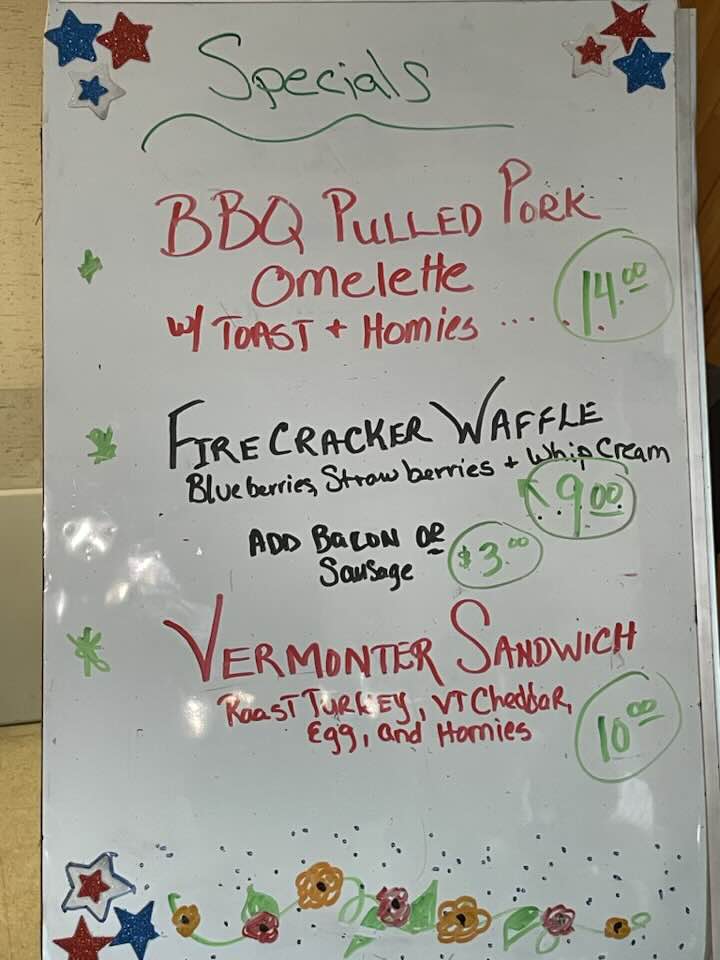 Specials
BBQ PULLED PORK
Omelette
w/ TOAST + Homies ..... 14.00
FIRECRACKER WAFFLE
Blueberries, Strawberries + Whip Cream
9.00
ADD BACON OR
Sausage $3.00
VERMONTER SANDWICH
Roast TURKEY, VT Cheddar,
Egg, and Homies 10.00